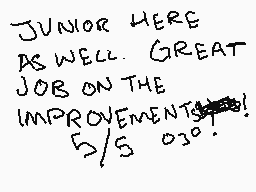 JUNIOR HERE
AS WELL. GREAT
JOB ON THE
IMPROVEMENTS!
5/5 030!